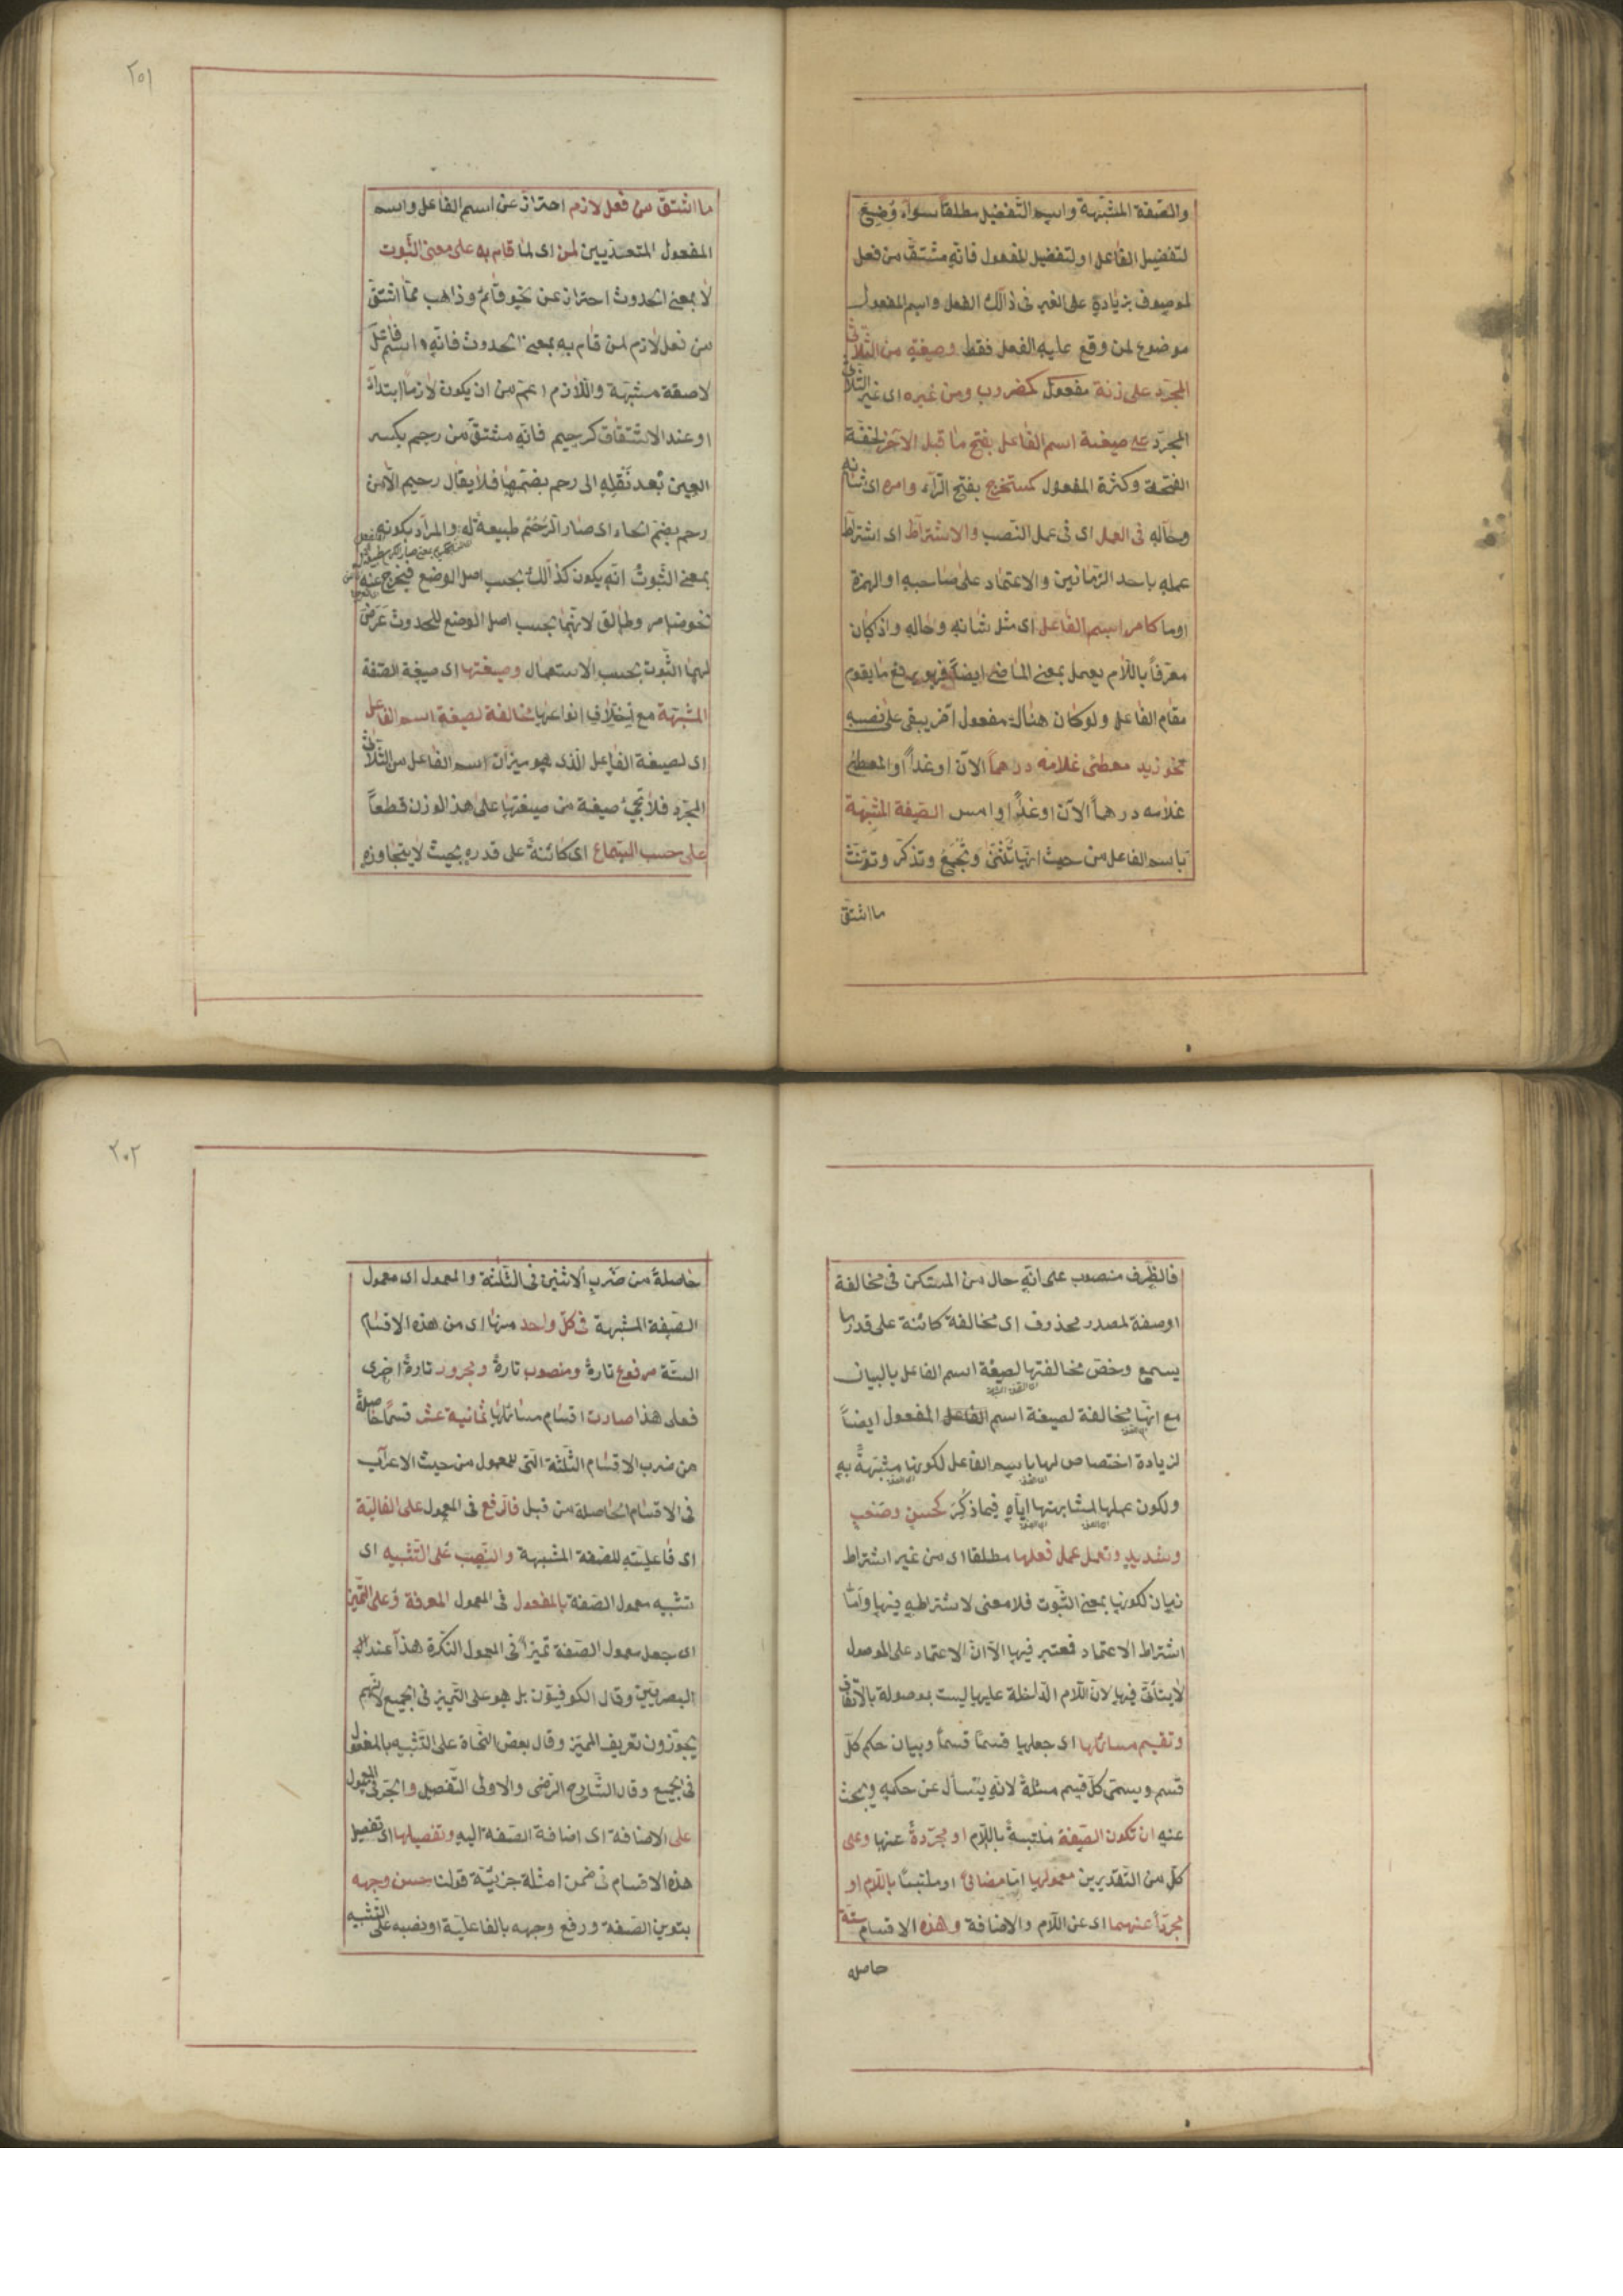 والصّفة المشبّهة واسم التّفضيل مطلقاً سوآء وُضِعَ
لتفضيل الفاعل او لتفضيل المفعول فانّه مشتقّ من فعل
لموصوف بزيادة على الغير فى ذالك الفعل واسم المفعول
موضوع لمن وقع عليه الفعل فقط وصيغته من الثّلاثى
المجرّد على زنة مفعول كمضروب ومن غيره اى غير الثّلاثى
المجرّد على صيغة اسم الفاعل بفتح ما قبل الآخر لخفّة
الفتحة وكثرة المفعول كمستخرج بفتح الرّآء وامره اى شانه
وحاله فى العمل اى فى عمل النّصب والاشتراط اى اشتراط
عمله باحد الزّمانين والاعتماد على صاحبه او الهمزة
او ما كامر اسم الفاعل اى مثل شانه وحاله واذ كان
معرّفاً باللّام يعمل بمعنى الماضى ايضاً فهو يرفع ما يقوم
مقام الفاعل ولو كان هناك مفعول آخر يبقى على نصبه
نحو زيد معطى غلامه درهماً الآن او غداً او المعطى
غلامه درهماً الآن او غداً او امس الصّفة المشبّهة
باسم الفاعل من حيث انّها تُثنّى وتُجمع وتذكّر وتؤنّث
ما اشتقّ
٢٠١
ما اشتقّ من فعل لازم احتراز عن اسم الفاعل واسم
المفعول المتعدّيين لمن اى لما قام به على معنى الثّبوت
لا بمعنى الحدوث احتراز عن نحو قائم وذاهب ممّا اشتقّ
من فعل لازم لمن قام به بمعنى الحدوث فانّه اسم فاعل
لا صفة مشبّهة واللّازم اعمّ من ان يكون لازماً ابتدآء
او عند الاشتقاق كرحيم فانّه مشتقّ من رحم بكسر
العين بعد نقله الى رحم بضمّها فلا يقال رحيم الّا من
رحم بضمّ الحاء اى صار الرّحم طبيعة له والمراد بكونه
بمعنى الثّبوت انّه يكون كذالك بحسب اصل الوضع فيخرج عنه
نحو ضامر وطالق لانّهما بحسب اصل الوضع للحدوث عَرَضَ
لهما الثّبوت بحسب الاستعمال وصيغتها اى صيغة الصّفة
المشبّهة مع اختلاف انواعها مخالفة لصيغة اسم الفاعل
اى لصيغة الفاعل الّذى هو ميزان اسم الفاعل من الثّلاثى
المجرّد فلا تجئ صيغة من صيغتها على هذا الوزن قطعاً
على حسب السّماع اى كائنة على قدره بحيث لا يتجاوزه
فالظّرف منصوب على انّه حال من المستكن فى مخالفة
او صفة لمصدر محذوف اى مخالفة كائنة على قدر ما
يسمع وخصّ مخالفتها لصيغة اسم الفاعل بالبيان
مع انّها مخالفة لصيغة اسم المفعول ايضاً
لزيادة اختصاص لها باسم الفاعل لكونها مشبّهةً به
ولكون عملها لمشابهتها ايّاه فيما ذُكِرَ كحسن وصعب
وشديد وتعمل عمل فعلها مطلقا اى من غير اشتراط
زمان لكونها بمعنى الثّبوت فلا معنى لاشتراطه فيها وامّا
اشتراط الاعتماد فمعتبر فيها الّا انّ الاعتماد على الموصول
لا يتأتّى فيها لانّ اللّام الدّاخلة عليها ليست بموصولة بالاتّفاق
وتقسيم مسائلها اى جعلها قسماً قسماً وبيان حكم كلّ
قسم ويسمّى كلّ قسم مسئلة لانّه يُسأل عن حكمه ويبحث
عنه ان تكون الصّفة ملتبسةً باللّام او مجرّدةً عنها وعلى
كلّ من التّقديرين معمولها امّا مضافٌ او ملتبساً باللّام او
مجرّداً عنهما اى عن اللّام والاضافة وهذه الاقسام ستّة
حاصله
٢٠٢
حاصلة من ضرب الاثنين فى الثّلثة والمعمول اى معمول
الصّفة المشبهة فى كلّ واحد منها اى من هذه الاقسام
الستّة مرفوع تارةً ومنصوب تارةً ومجرور تارةً اخرى
فعلى هذا صارت اقسام مسائلها ثمانية عشر قسمًا حاصلةً
من ضرب الاقسام الثّلثة الّتى للمعمول من حيث الاعراب
فى الاقسام الحاصلة من قبل فالرّفع فى المعمول على الفاعليّة
اى فاعليّته للصّفة المشبهة والنّصب على التّشبيه اى
تشبيه معمول الصّفة بالمفعول فى المعمول المعرفة وعلى التّميز
اى جعل معمول الصّفة تميزاً فى المعمول النّكرة هذا عند
البصريّين وقال الكوفيّون بل هو على التّميز فى الجميع لانّهم
يجوّزون تعريف المميّز وقال بعض النّحاة على التّشبيه بالمفعول
فى الجميع وقال الشّارح الرّضى والاولى التّفصيل والجرّ فى المعمول
على الاضافة اى اضافة الصّفة اليه وتفصيلها اى تفصيل
هذه الاقسام فى ضمن امثلة جزئيّة قولنا حسن وجهه
بتنوين الصّفة ورفع وجهه بالفاعليّة او نصبه على التّشبيه